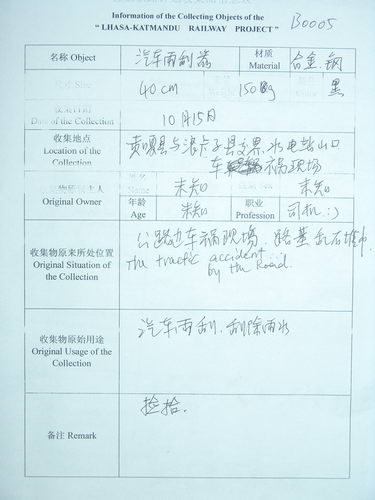 Information of the Collecting Objects of the
"LHASA-KATMANDU RAILWAY PROJECT"
B0005
名称 Object 汽车雨刮器 材质 Material 合金.钢
Size 40cm 150g 黑
Date of the Collection 10月15日
收集地点
Location of the
Collection
县与浪卡子县交界,水电站山口
车祸现场
Original Owner 未知 未知
年龄
Age 未知 职业
Profession 司机:)
收集物原来所处位置
Original Situation of
the Collection
公路边车祸现场.路基乱石堆中
the tracfic accident
by the Road.
收集物原始用途
Original Usage of the
Collection
汽车雨刮.刮除雨水
备注 Remark 捡拾.